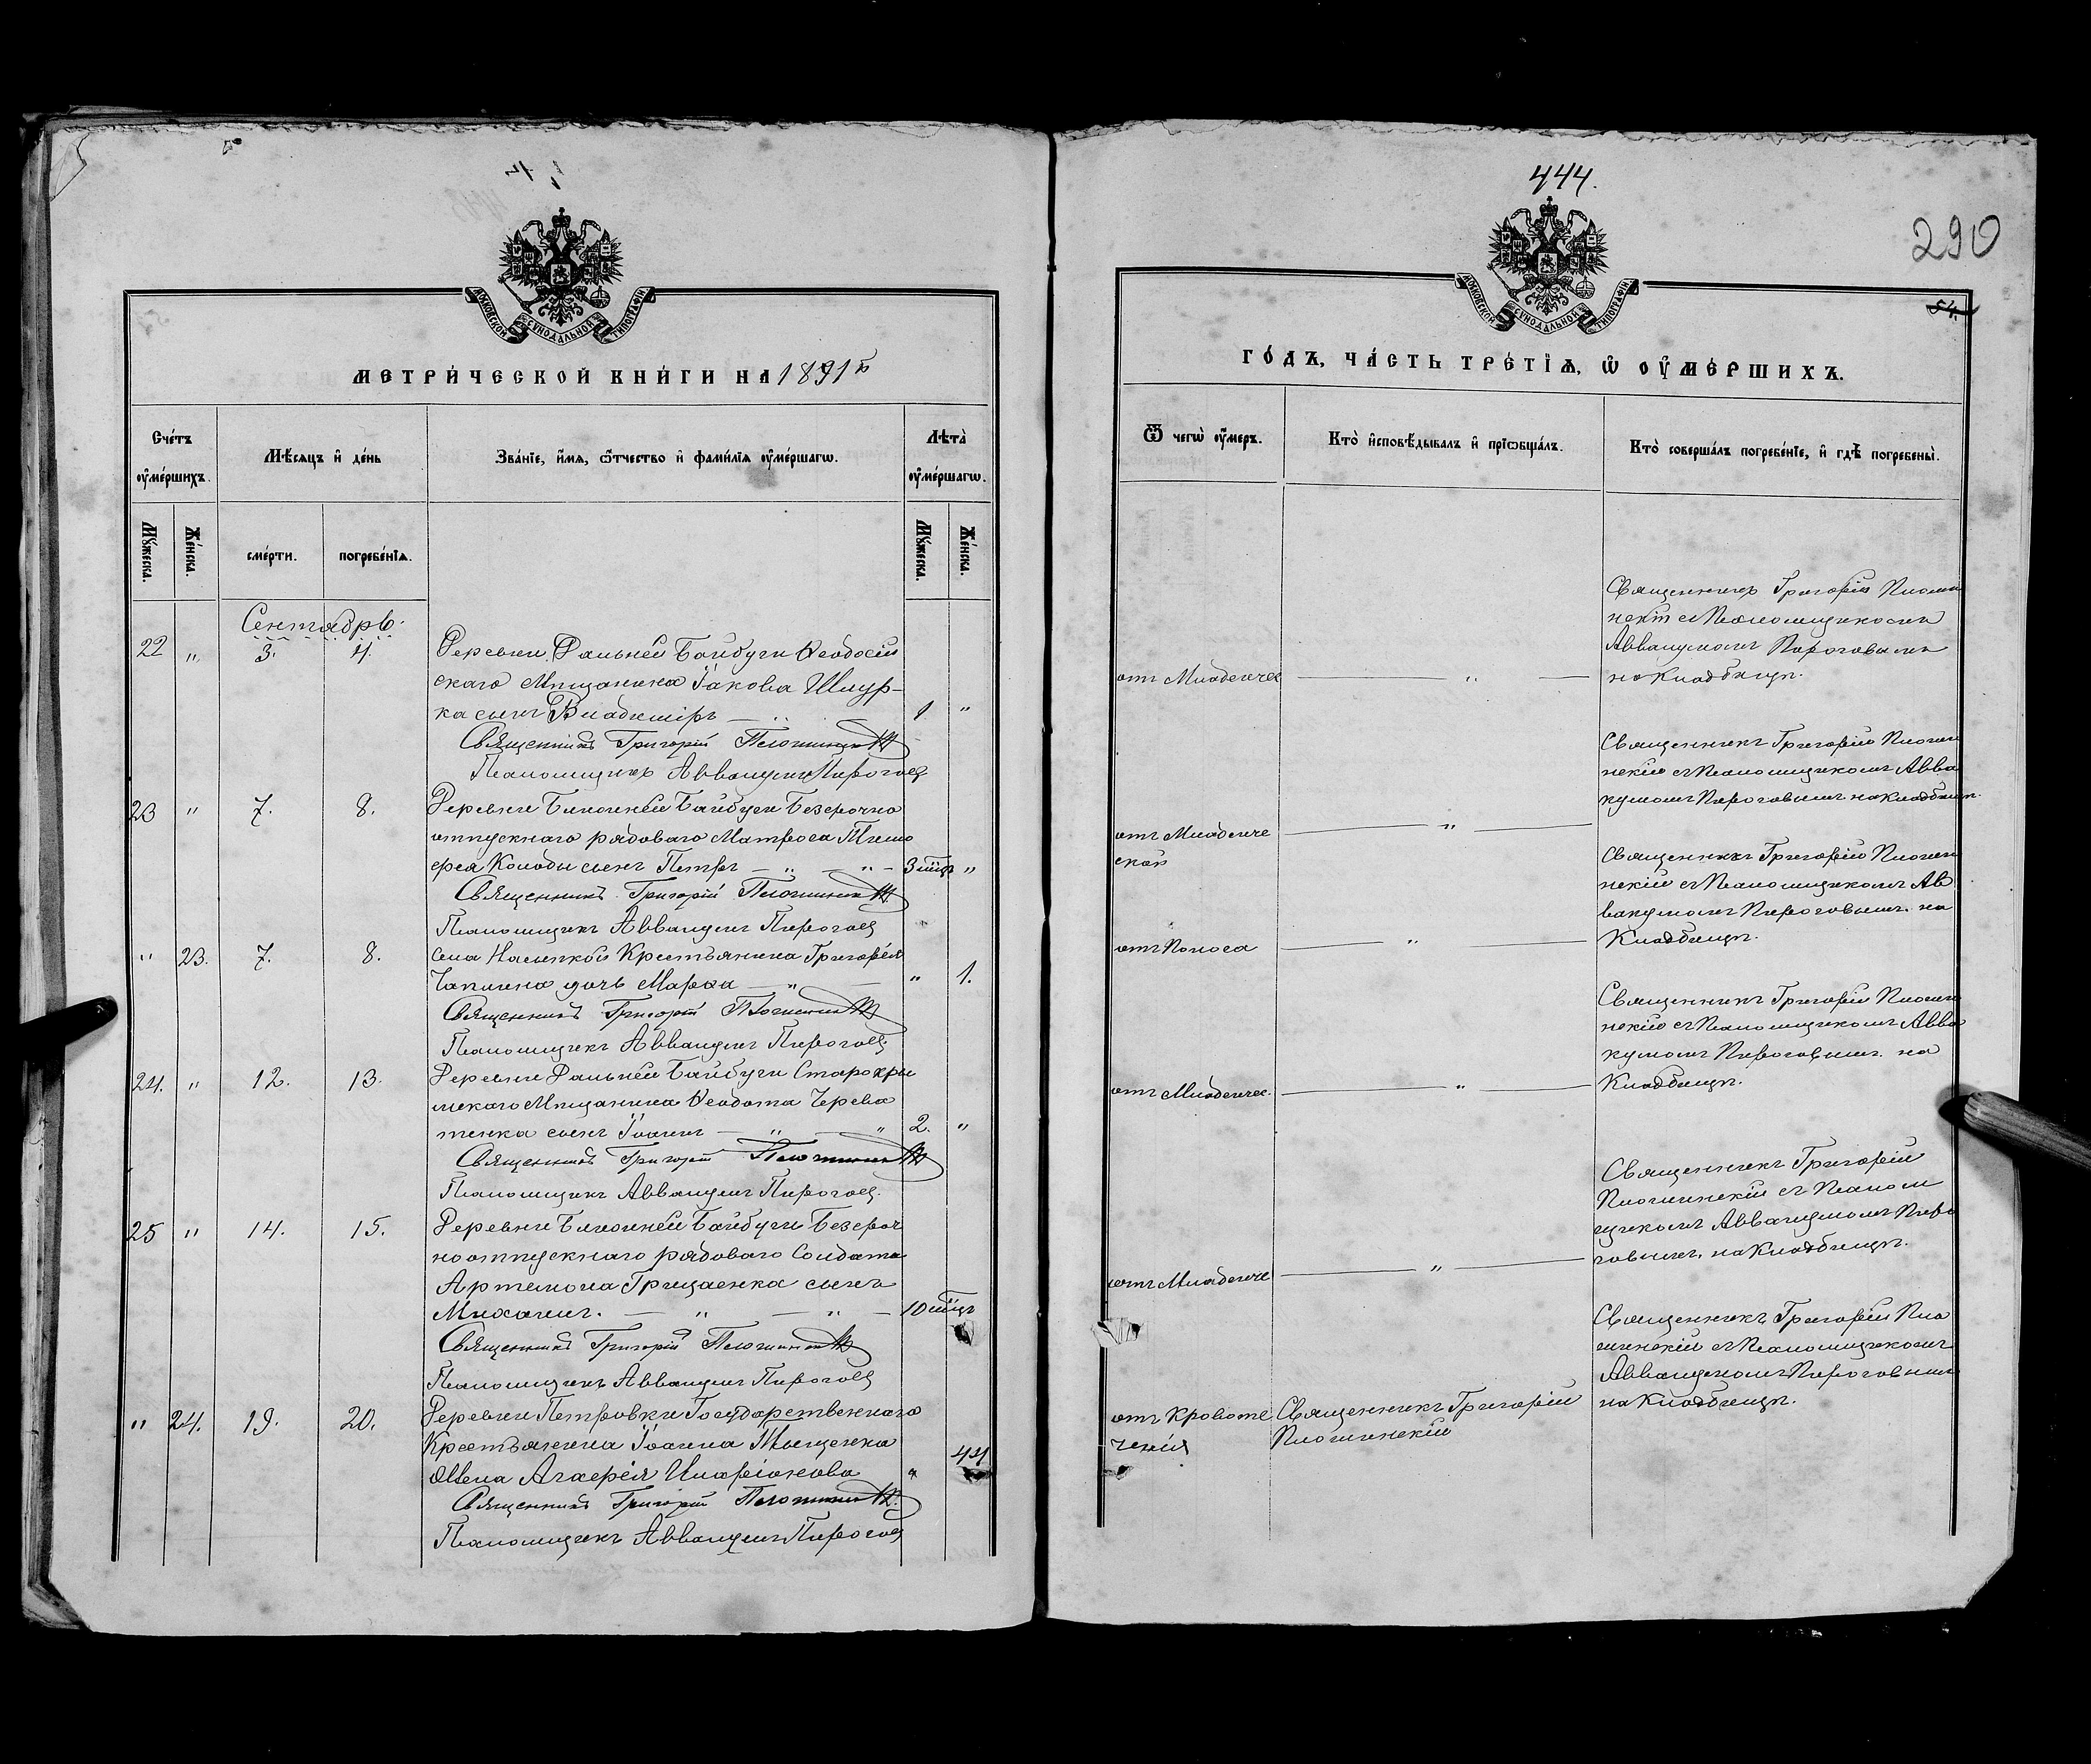 МОСКОВСКОЙ СУНОДАЛЬНОЙ ТИПОГРАФІИ
МЕТРИ́ЧЕСКОЙ КНИ́ГИ НА 1891й
Сче́тъ ѹ҆ме́ршихъ.
Мѣ́сяцъ и҆ де́нь
Зва́нїе, и҆́мѧ, ѻ҆́тчество и҆ фами́лїѧ ѹ҆ме́ршагѡ.
Лѣта̀ ѹ҆ме́ршагѡ.
Мꙋ́жеска.
Же́нска.
сме́рти.
погребе́нїѧ.
Мꙋ́жеска.
Же́нска.
Сентябрь.
22 " 3. 4. Деревни Дальней Байбуги Ѳеодосій
скаго Мѣщанина Іакова Шмур-
ка сынъ Владиміръ — " — 1 "
Священникъ Григорій Плогинскій
Псаломщикъ Аввакумъ Пироговъ
23 " 7. 8. Деревни Ближней Байбуги Безсрочно
отпускнаго рядоваго Матроса Тимо
фея Колоды сынъ Петръ — " — " — 3 мѣц "
Священникъ Григорій Плогинскій
Псаломщикъ Аввакумъ Пироговъ
" 23. 7. 8. Села Насыпкой Крестьянина Григорія
Чаплина дочь Марѳа — " — " 1.
Священникъ Григорій Плогинскій
Псаломщикъ Аввакумъ Пироговъ
24. " 12. 13. Деревни Дальней Байбуги Старокры
мскаго Мѣщанина Ѳеодота Черева
тенка сынъ Іоаннъ — " — " 2. "
Священникъ Григорій Плогинскій
Псаломщикъ Аввакумъ Пироговъ.
25 " 14. 15. Деревни Ближней Байбуги Безсроч
ноотпускнаго рядоваго Солдата
Артемона Грицаенка сынъ
Михаилъ. — " — " — 10 мѣцъ
Священникъ Григорій Плогинскій
Псаломщикъ Аввакумъ Пироговъ
" 24. 19. 20. Деревни Петровки Государственнаго
Крестьянина Іоанна Тыщенка
Жена Агафія Иларіонова " 44
Священникъ Григорій Плогинскій
Псаломщикъ Аввакумъ Пироговъ
444.
290
54.
МОСКОВСКОЙ СУНОДАЛЬНОЙ ТИПОГРАФІИ
ГО́ДЪ, ЧА́СТЬ ТРЕ́ТЇѦ, Ѡ҆ ОУ҆МЕ́РШИХЪ.
Ѿ чегѡ̀ ѹ҆́меръ.
Кто̀ и҆сповѣ́дывалъ и҆ прїѡбща́лъ.
Кто̀ соверша́лъ погребе́нїе, и҆ гдѣ̀ погребены̀.
Священникъ Григорій Плогин
скій съ Псаломщикомъ
Аввакумомъ Пироговымъ
на Кладбищѣ.
отъ Младенчес — " —
Священникъ Григорій Плогин
скій съ Псаломщикомъ Авва
кумомъ Пироговымъ на Кладбищѣ.
отъ Младенче — " —
ской
Священникъ Григорій Плогин
скій съ Псаломщикомъ Ав
вакумомъ Пироговымъ. на
Кладбищѣ.
отъ Поноса — " —
Священникъ Григорій Плогин
скій съ Псаломщикомъ Авва
кумомъ Пироговымъ. на
Кладбищѣ.
отъ Младенчес. — " —
Священникъ Григорій
Плогинскій съ Псалом
щикомъ Аввакумомъ Пиро
говымъ. на Кладбищѣ.
отъ Младенче — " —
Священникъ Григорій Пло
гинскій съ Псаломщикомъ
Аввакумомъ Пироговымъ
на Кладбищѣ.
отъ Кровоте Священникъ Григорій
ченія Плогинскій